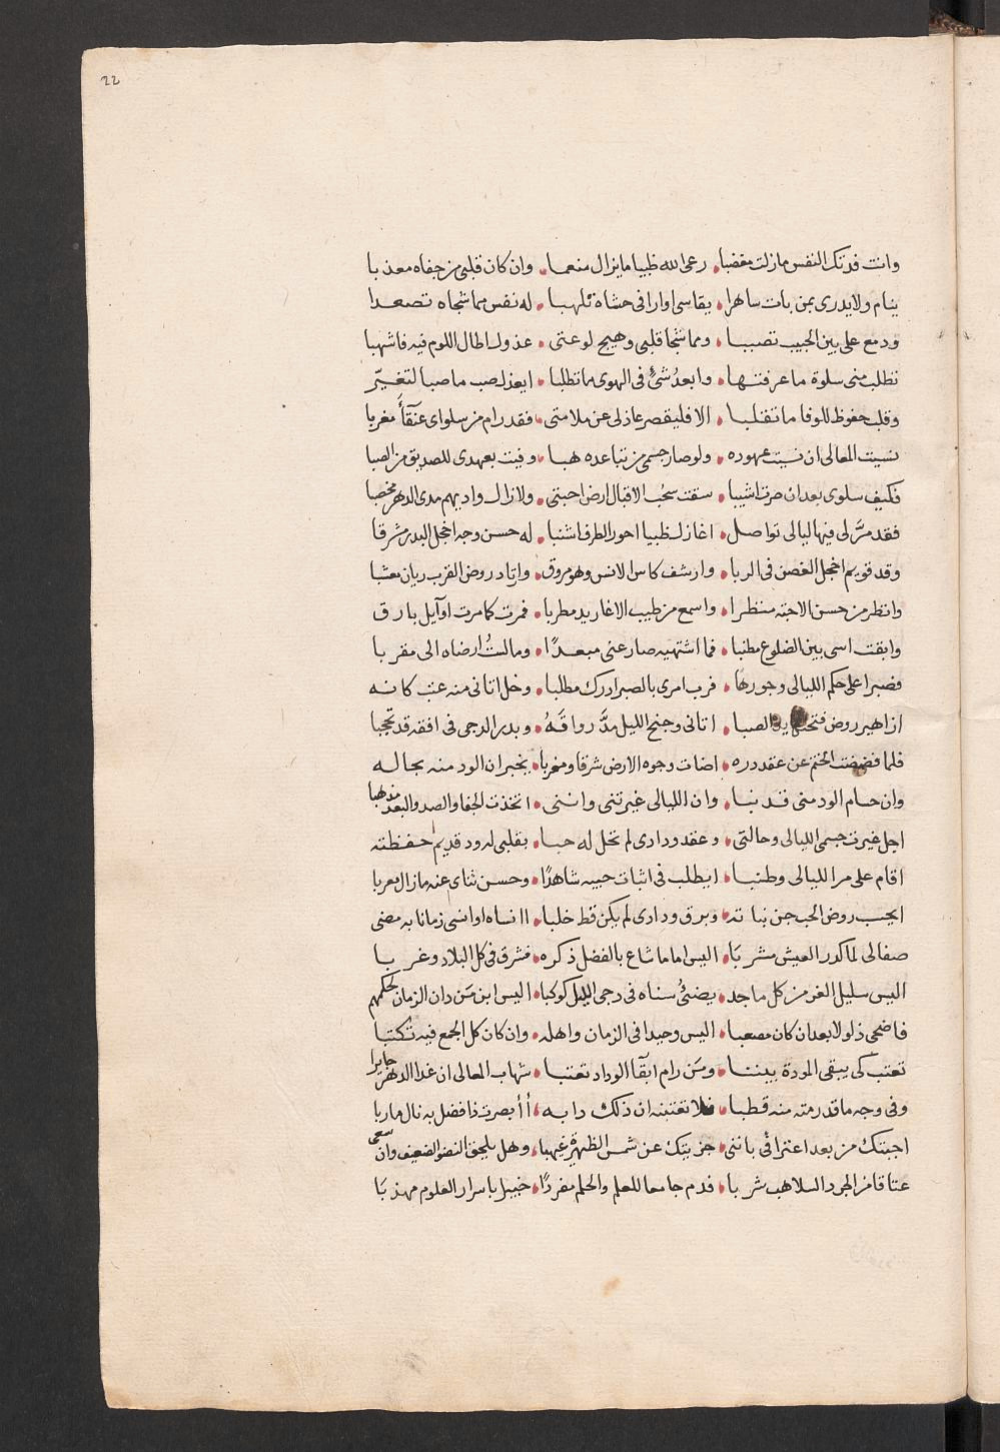 22
وانت فدتك النفس مازلت مغضبا • رعى الله ظبيا مايزال منعما • وان كان قلبى من جفاه معذبا
ينام ولا يدرى بمن بات ساهرا • يقاسى اوارا فى حشاه تلهبا • له نفس مما شجاه تصعدا
ودمع على بين الحبيب تصببا • ومما شجا قلبى وهيج لوعتى • عذول اطال اللوم فيه فاشهبا
تطلب منى سلوة ما عرفتها • وابعدُ شئٍ فى الهوى ما تطلبا • ايعذل صب ما صبا لتغيّر
وقلب حفوظ للوفا ما تقلبا • الا فليقصر عاذلى عن ملامتى • فقد رام من سلواى عنقآً مغربا
نسيت المعالى ان نسيت عهوده • ولو صار جسمى من تباعده هبا • وفيت بعهدى للصديق من الصبا
فكيف سلوى بعد ان صرت اشيبا • سقت سحب الاقبال ارض احبتى • ولا زال واديهم مدى الدهر مخصبا
فقد مرَّ لى فيها ليالى تواصل • اغازل ظبيا احور الطرف اشنبا • له حسن وجه اخجل البدر مشرقا
وقد قويم اخجل الغصن فى الربا • وارشف كاس الانس وهو مروق • وارتاد روض القرب ريان معشبا
وانظر من حسن الاحبة منتظرا • واسمع من طيب الاغاريد مطربا • فمرت كما مرت اوآيل بارق
وابقت اسى بين الضلوع مطنبا • فما اشتهيه صار عنى مبعدًا • ومالتُ ارضاه الى مقربا
فصبرا على حكم الليالى وجورها • فرب امرى بالصبر ادرك مطلبا • وخل اتانى منه عتب كانه
ازاهير روض فتحتها يد الصبا • اتانى وجنح الليل مدَّ رواقَهُ • وبدر الدجى فى افقه قد تحجبا
فلما فضضت الختم عن عقد دره • اضات وجوه الارض شرقا ومغربا • يخبر ان الود منه بحاله
وان حسام الود منى قد نبا • وان الليالى غيرتنى واننى • اتخذت الجفا والصد والبعد مذهبا
اجل غيرت جسمى الليالى وحالتى • وعقد ودادى لم تحل له حبا • بقلبى له ود قديم حفظته
اقام على مر الليالى وطنبا • ايطلب فى اثبات حبيه شاهدًا • وحسن ثناى عنه مازال معربا
ايجب روض الحب جن نباته • وبرق ودادى لم يكن قط خلبا • اانساه او انسى زمانا به مضى
صفا لى لما كدر العيش مشربَا • اليس اماما شاع بالفضل ذكره • فشرق فى كل البلاد وغربا
اليس سليل الغر من كل ماجد • يضئُ سناه فى دجى الليل كوكبا • اليس ابن مَن دان الزمان لحكمهم
فاضحى ذلولا بعد ان كان مصعبا • اليس وحيدا فى الزمان واهله • وان كان كل الجمع فيه تكتبا
تعتب كى يبقى المودة بيننا • ومَن رام ابقآ الوداد تعتبا • شهاب المعالى ان غدا الدهر جايرا
وفى وجه ما قد رمته منه قطبا • فلا تعتبنه ان ذلك دابه • أأبصرت ذا فضل به نال ماربا
اجبتك من بعد اعترافى باننى • جزيتك عن شمس الظهيرة غيهبا • وهل يلحق النضو الضعيف وان سعى
عتاقا من الجرد السلاهب شربا • فدم جامعا للعلم والحلم مفردًا • خبيرا باسرار العلوم مهذبَا